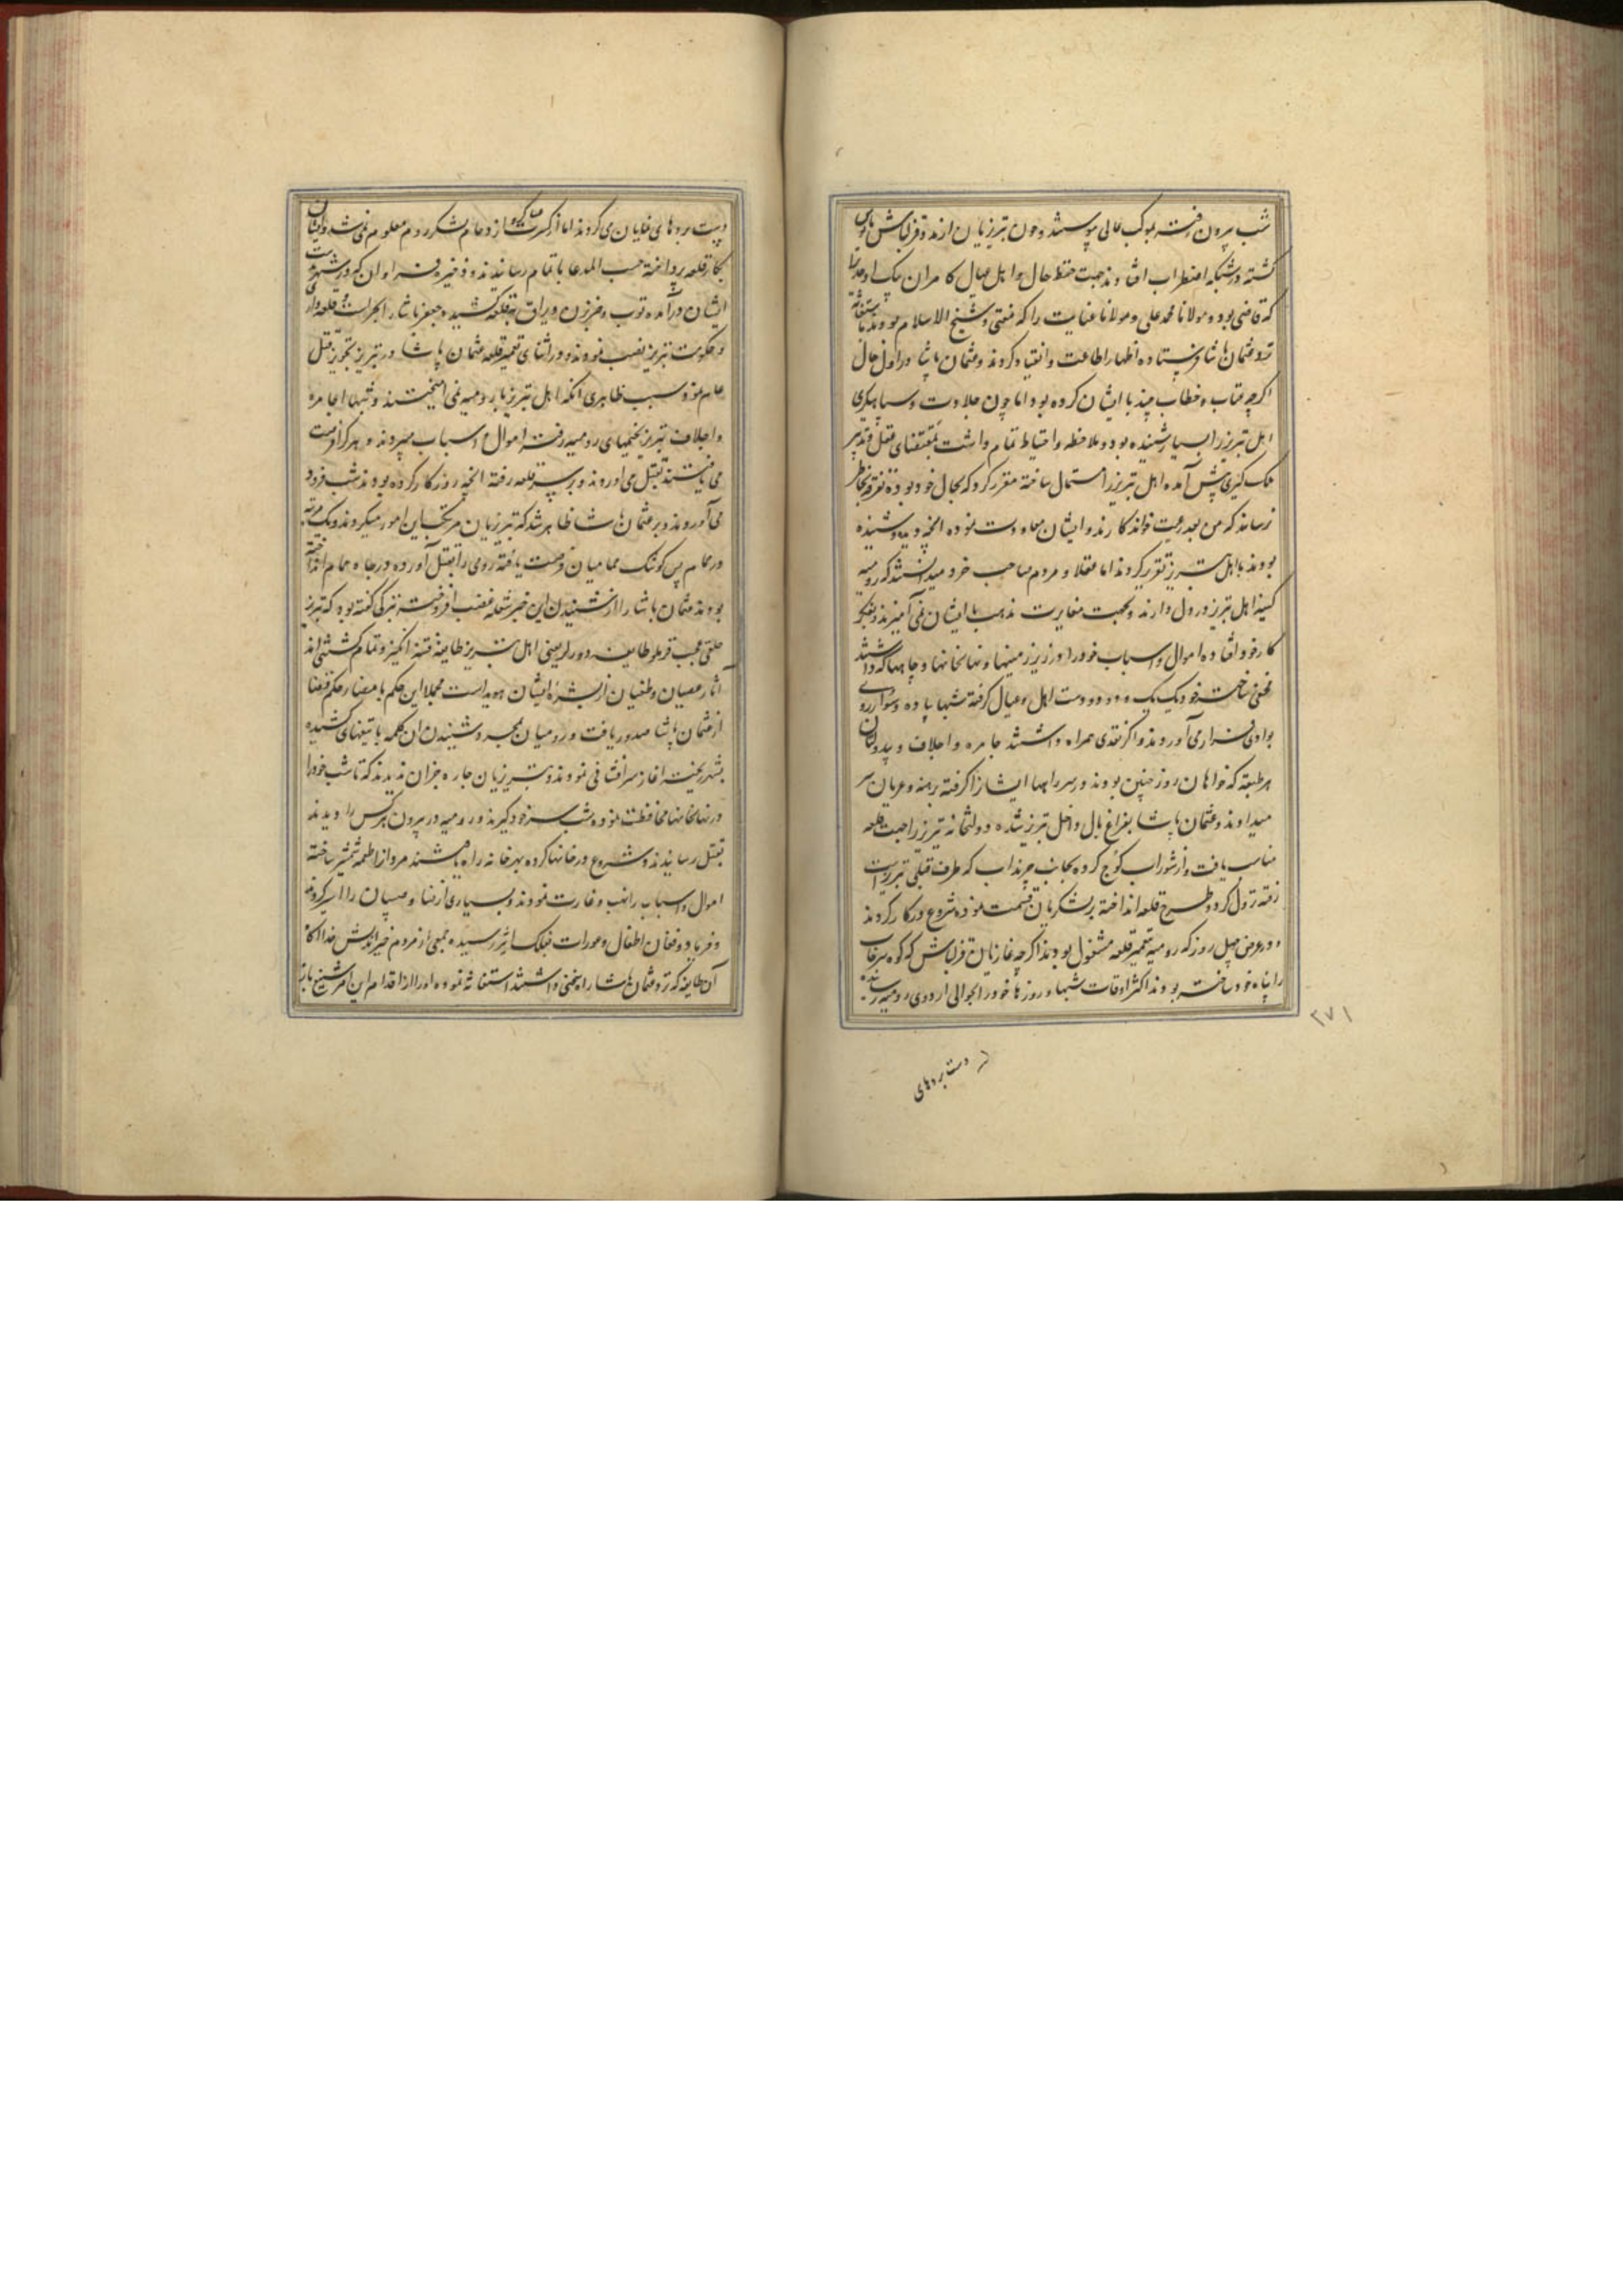 شب بیرون رفته بموکب عالی پیوستند و چون تبریزیان از مدد قزلباش مایوس
گشته در شبکه اضطراب افتادند جهت حفظ حال و اهل و عیال کامران بیک اوحدی را
که قاضی بود و مولانا محمد علی و مولانا عنایت را که مفتی و شیخ الاسلام بودند باستغاثه
نزد عثمان پاشا فرستاده اظهار اطاعت و انقیاد کردند و عثمان پاشا در اول حال
اگرچه عتاب و خطاب چند با ایشان کرده بود اما چون جلادت و سپاهیگری
اهل تبریز را بسیار شنیده بود و ملاحظه و احتیاط تمام داشت بمقتضای عقل و تدبیر
ملک گیری پیش آمده اهل تبریز را استمال ساخته مقرر کرد که بحال خود بوده تفرقه بخاطر
نرسانند که من بعد رعیت خواندکارند و ایشان معاودت نموده انچه دیده و شنیده
بودند با اهل تبریز تقریر کردند اما عقلا و مردم صاحب خرد میدانستند که رومیه
کینه اهل تبریز در دل دارند و بجهت مغایرت مذهب با ایشان نمی آمیزند و بفکر
کار خود افتاده اموال و اسباب خود را در زیر زمینها و نهانخانها و چاهها که داشتند
مخفی ساخته خود یک یک و دو دو دست اهل و عیال گرفته شبها پیاده و سواره روی
بوادی فرار می آوردند و اگر نقدی همراه داشتند جامره و اجلاف و بیدولتان
هر طبقه که خواهان روز چنین بودند در سر راهها ایشانرا گرفته برهنه و عریان سر
میدادند و عثمان پاشا بفراغ بال داخل تبریز شده دولتخانه تبریز را جهت قلعه
مناسب یافت و از شوراب کوچ کرده بجانب چرنداب که طرف قبلی تبریز است
رفته نزول کرد و طرح قلعه انداخته بر لشکریان قسمت نموده شروع در کار کردند
و در عرض چهل روز که رومیه بتعمیر قلعه مشغول بودند اگرچه غازیان قزلباش که کوه سرخاب
را پناه خود ساخته بودند اکثر اوقات شبها و روزها خود را بحوالی اردوی رومیه رسانده
۲۷۱
دستبردهای
دستبردهای نمایان می کردند اما از کثرت سپاه و ازدحام لشکر روم معلوم نمی شد و ایشان
بکار قلعه پرداخته حسب المدعا باتمام رسانیدند و ذخیره فراوان که در شهر بدست
ایشان درآمده توپ و ضربزن و یراق بقلعه کشیده جعفر پاشا را بحراست قلعه داری
و حکومت تبریز نصب نمودند و در اثنای تعمیر قلعه عثمان پاشا در تبریز تجویز قتل
عام نمود و سبب ظاهری آنکه اهل تبریز با رومیه نمی آمیختند و شبها جامره
و اجلاف تبریز بخیمهای رومیه رفته اموال و اسباب میبردند و هر کرا فرصت
می یافتند بقتل می آوردند و بر سر قلعه رفته انچه روز کار کرده بودند شب فرود
می آوردند و بر عثمان پاشا ظاهر شد که تبریزیان مرتکب این امور میگردند و یک مرتبه
در حمام پس کوشک حمامیان فرصت یافته رومی را بقتل آورده در چاه حمام انداخته
بودند عثمان پاشا را از شنیدن این خبر شعله غضب افروخته بترکی گفته بود که تبریز
خلقی عجب قرملو طایفه دور لر یعنی اهل تبریز طایفه فتنه انگیز و تمام کشتنی اند
آثار عصیان و طغیان از بشره ایشان هویداست مجملا این حکم بامضا رحکم قضا
از عثمان پاشا صدور یافت و رومیان بمجرد شنیدن ان کلمه با تیغهای کشیده
بشهر ریخته آغاز سرافشانی نمودند و تبریزیان چاره جز آن ندیدند که تا شب خود را
در نهانخانها محافظت نموده شب سر خود گیرند و رومیه در بیرون هر کس را دیدند
بقتل رسانیدند و شروع در خانها کرده بهر خانه راه یافتند مردانرا طعمه شمشیر ساخته
اموال و اسباب را نهب و غارت نمودند و بسیاری از نسا و صبیان را اسیر کردند
و فریاد و فغان اطفال و عورات بفلک اثیر رسیده جمعی از مردم خیراندیش خداآگاه
آن طایفه که نزد عثمان پاشا راه سخنی داشتند استغاثه نموده او را از اقدام این امر شنیع باز